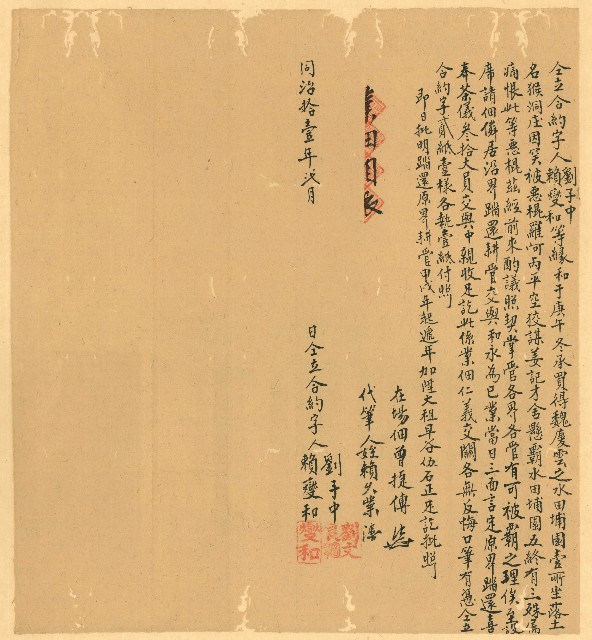 仝立合約字人劉子中
賴變和等緣和于庚午冬承買得魏慶雲之水田埔園壹所坐落土
名猴洞庄因笑被惡棍羅阿丙平空狡謀姜記才舍懸霸水田埔園五終有三殊屬
痛恨此等惡棍茲經前來酌議照契掌管各界各管有可被霸之理俟
席請佃憐居沿界踏還耕管交與和永為己業當日三面言定原界踏還喜
奉茶儀叁拾大員交與中親收足訖此係業佃仁義交關各無反悔口筆有憑仝立
合約字貳紙壹樣各執壹紙付照
即日批明踏還原界耕管甲戌年起遞年加陞大租早谷伍石正足訖批照
在場佃曾捷傳
代筆人姪賴久業
同治拾壹年弍月
日仝立合約字人劉子中
賴變和
劉文
變和